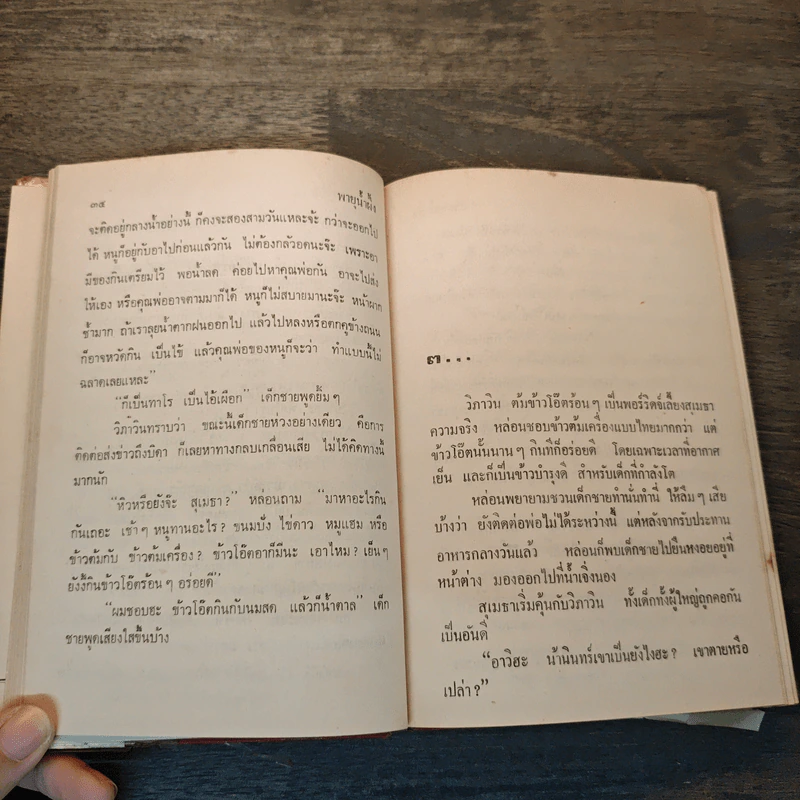 ๓๔
พายุน้ำผึ้ง
จะติดอยู่กลางน้ำอย่างนี้ ก็คงจะสองสามวันแหละจ้ะ กว่าจะออกไป
ได้ หนูก็อยู่กับอาไปก่อนแล้วกัน ไม่ต้องกลัวอดนะจ๊ะ เพราะอา
มีของกินเตรียมไว้ พอน้ำลด ค่อยไปหาคุณพ่อกัน อาจะไปส่ง
ให้เอง หรือคุณพ่ออาจตามมาก็ได้ หนูก็ไม่สบายมานะจ๊ะ หน้าผาก
ช้ำมาก ถ้าเราลุยน้ำตากฝนออกไป แล้วไปหลงหรือตกคูข้างถนน
ก็อาจหวัดกิน เป็นไข้ แล้วคุณพ่อของหนูก็จะว่า ทำแบบนี้ไม่
ฉลาดเลยแหละ”
“ก็เป็นทาโร เป็นไอ้เผือก” เด็กชายพูดยิ้ม ๆ
วิภาวินทราบว่า ขณะนี้เด็กชายห่วงอย่างเดียว คือการ
ติดต่อส่งข่าวถึงบิดา ก็เลยหาทางกลบเกลื่อนเสีย ไม่ได้คิดทางนี้
มากนัก
“หิวหรือยังจ๊ะ สุเมธา?” หล่อนถาม “มาหาอะไรกิน
กันเถอะ เช้า ๆ หนูทานอะไร? ขนมปัง ไข่ดาว หมูแฮม หรือ
ข้าวต้มกับ ข้าวต้มเครื่อง? ข้าวโอ๊ตอาก็มีนะ เอาไหม? เย็น ๆ
ยังงี้กินข้าวโอ๊ตร้อน ๆ อร่อยดี”
“ผมชอบฮะ ข้าวโอ๊ตกินกับนมสด แล้วก็น้ำตาล” เด็ก
ชายพูดเสียงใสขึ้นบ้าง
๓...
วิภาวิน ต้มข้าวโอ๊ตร้อน ๆ เป็นพอร์ริดจ์เลี้ยงสุเมธา
ความจริง หล่อนชอบข้าวต้มเครื่องแบบไทยมากกว่า แต่
ข้าวโอ๊ตนั้นนาน ๆ กินทีก็อร่อยดี โดยเฉพาะเวลาที่อากาศ
เย็น และก็เป็นข้าวบำรุงดี สำหรับเด็กที่กำลังโต
หล่อนพยายามชวนเด็กชายทำนั่นทำนี่ ให้ลืม ๆ เสีย
บ้างว่า ยังติดต่อพ่อไม่ได้ระหว่างนี้ แต่หลังจากรับประทาน
อาหารกลางวันแล้ว หล่อนก็พบเด็กชายไปยืนหงอยอยู่ที่
หน้าต่าง มองออกไปที่น้ำเจิ่งนอง
สุเมธาเริ่มคุ้นกับวิภาวิน ทั้งเด็กทั้งผู้ใหญ่ถูกคอกัน
เป็นอันดี
“อาวิฮะ น้านินทร์เขาเป็นยังไงฮะ? เขาตายหรือ
เปล่า?”